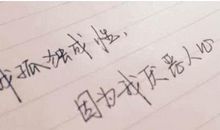 我孤独成性，
因为我厌恶人心